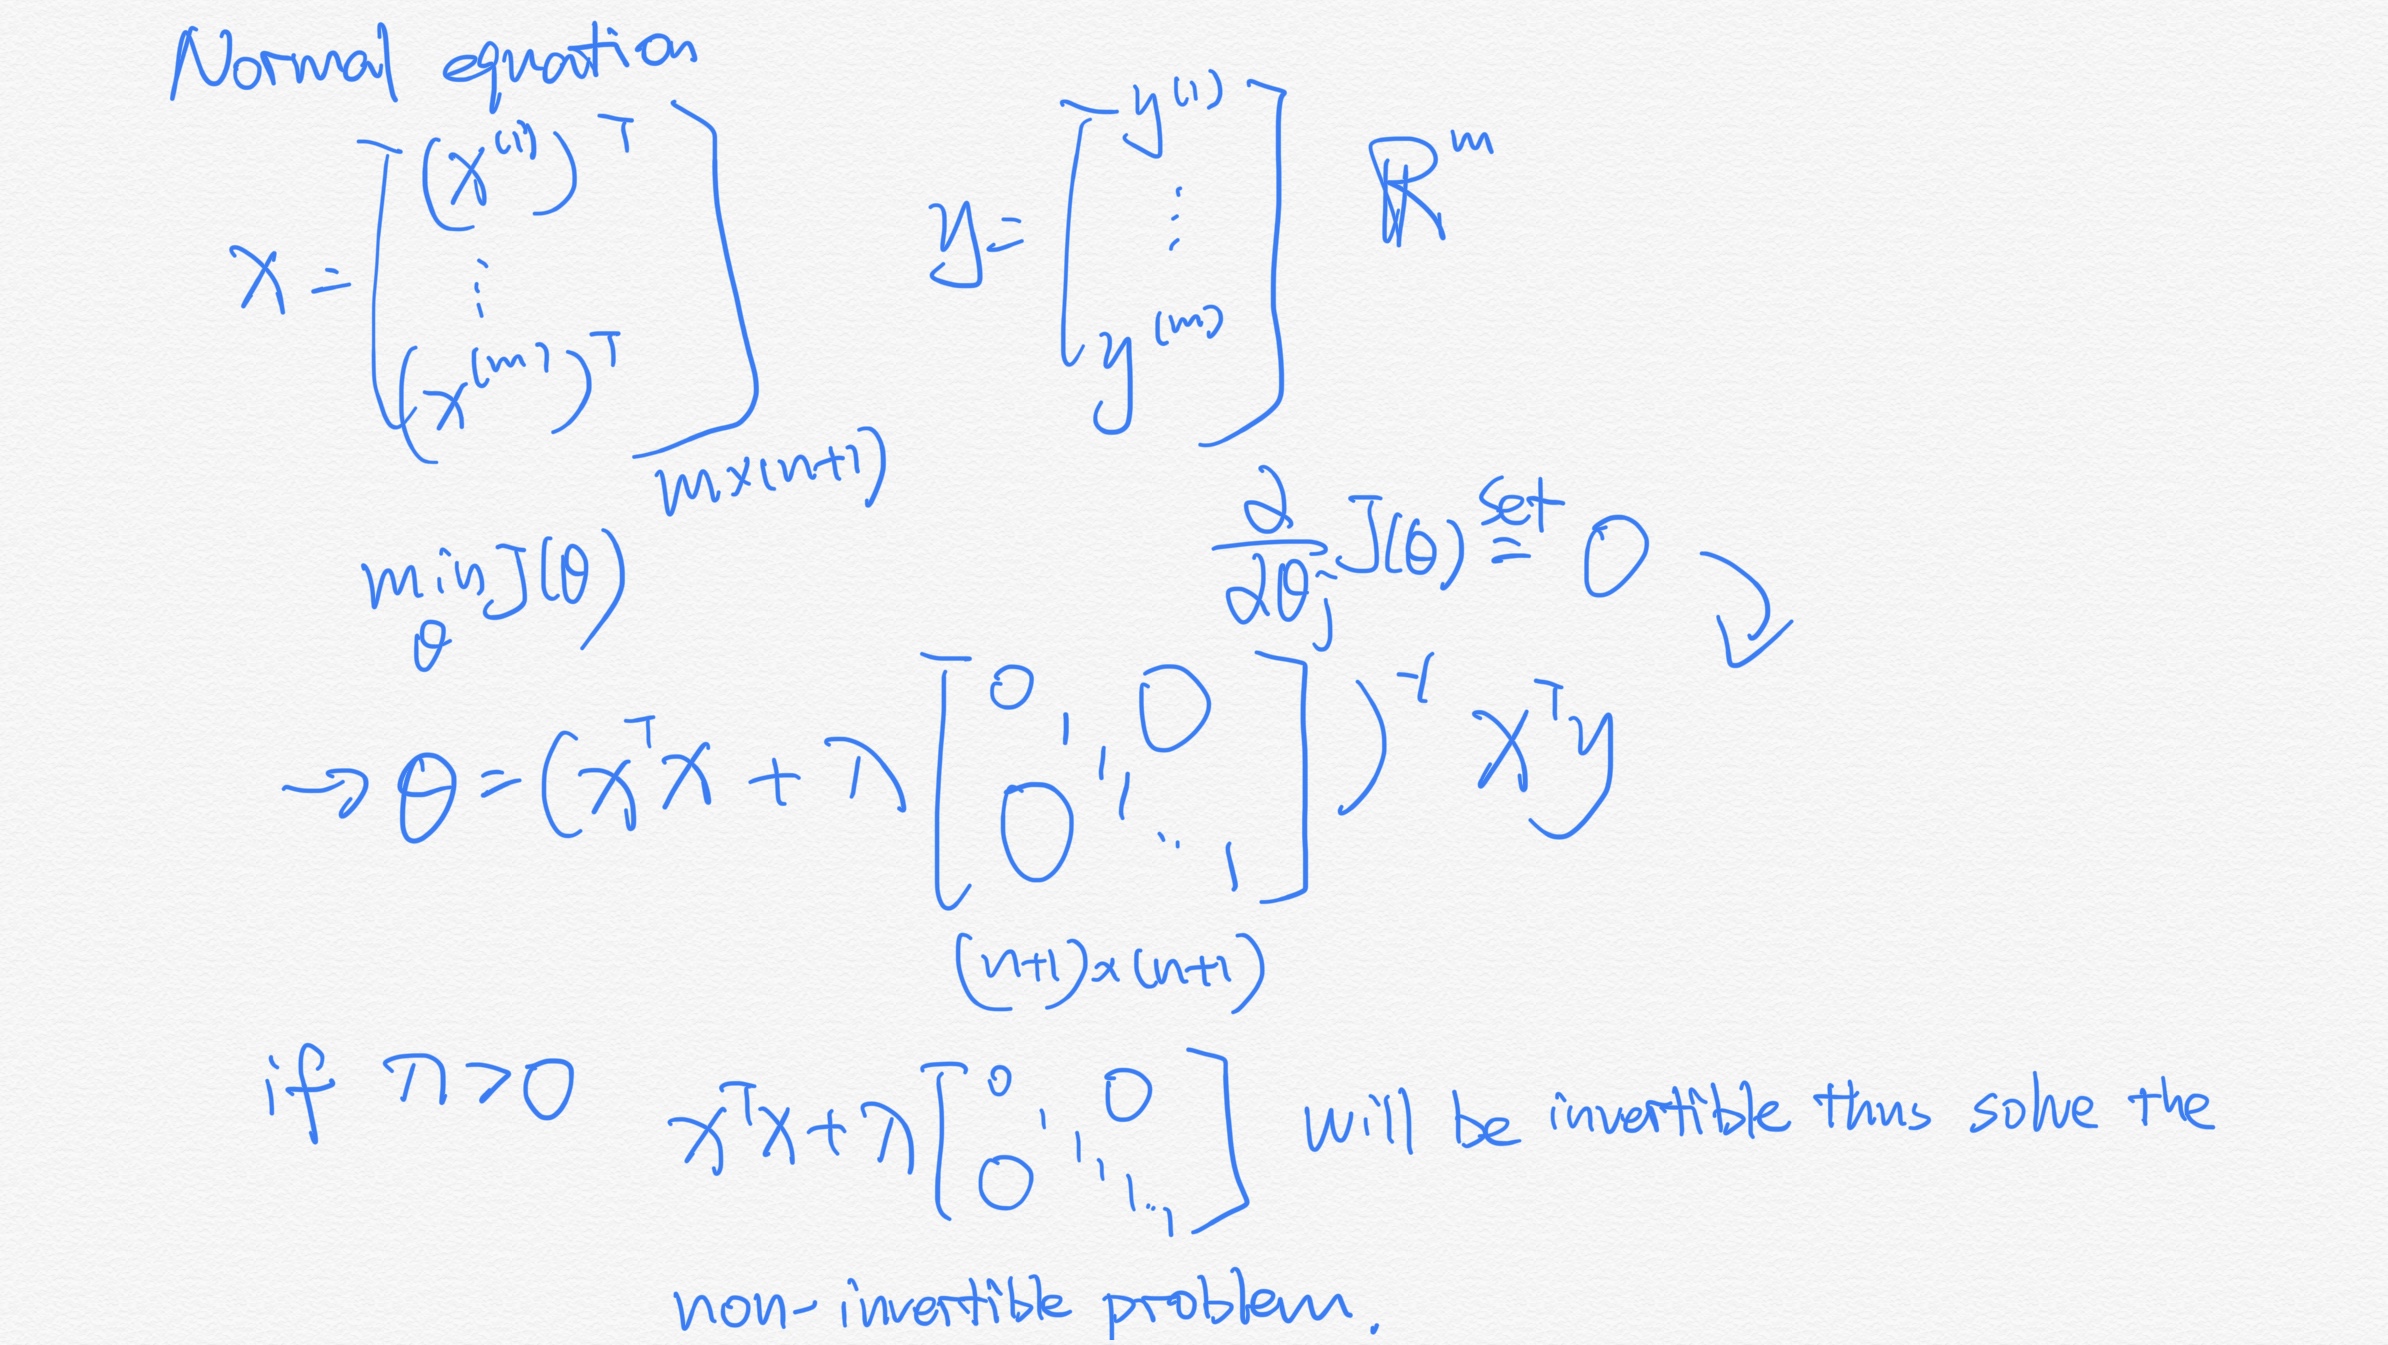 Normal equation
X = [ (x^(1))^T ⋮ (x^(m))^T ] m×(n+1)
y = [ y^(1) ⋮ y^(m) ] ℝ^m
min_θ J(θ)
∂/∂θ_j J(θ) set= 0
→ θ = (X^T X + λ [ 0 1 1 1 ⋱ 1 0 0 ])^-1 X^T y
(n+1)×(n+1)
if λ > 0 X^T X + λ [ 0 1 1 1 1 ⋱ 1 0 0 ] will be invertible thus solve the
non-invertible problem.